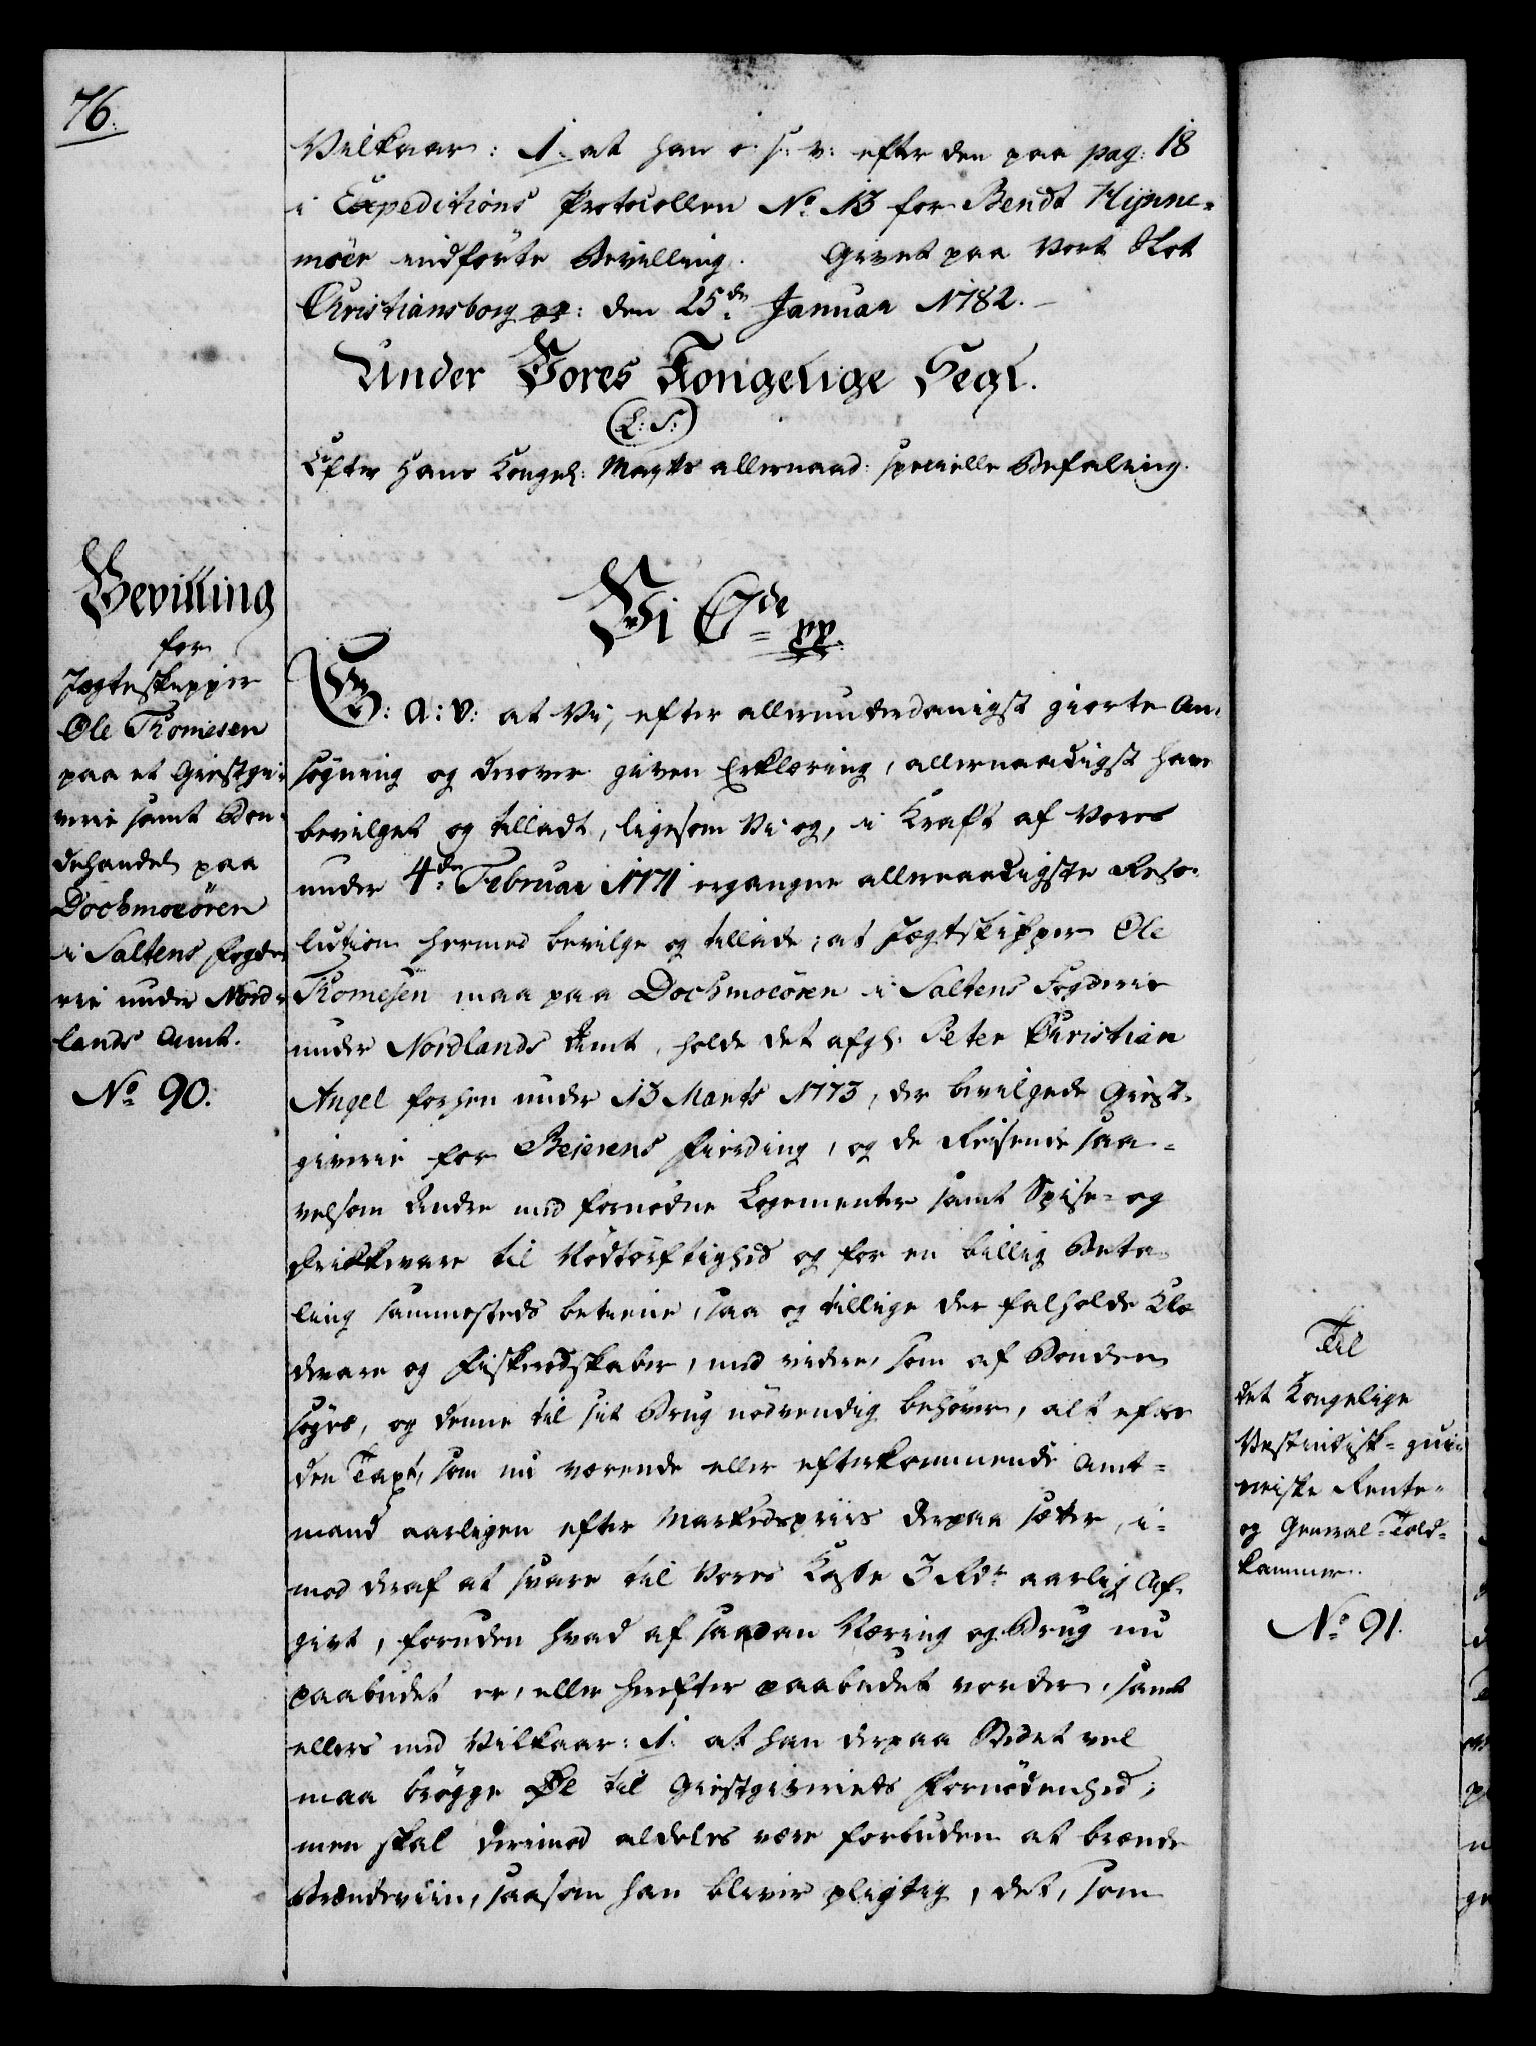 76.
Vilkaar: 1. at han o: s: v: efter den paa pag: 18
i Expeditions Protocollen No. 13 for Bendt Hynne-
möer indförte Bevilling. Givet paa Vort Slot
Christiansborg pp: den 25de Januar 1782.
Under Vores Kongelige Segl.
(L: S:)
Efter Hans Kongel: Maysts allernaad: specielle Befaling.
Bevilling
for
Jægteskipper
Ole Thomesen
paa et Giestgi-
verie samt Bon-
dehandel paa
Dochmoeören
i Saltens Fogde-
rie under Nord-
lands Amt.
No. 90.
Vi C 7de pp.
G: A: V: at Vi, efter allerunderdanigst giorte An-
søgning og derover given Erklæring, allernaadigst have
bevilget og tilladt, ligesom Vi og, i Kraft af Vores
under 4de Februar 1771 ergangne allernaadigste Reso-
lution hermed bevilge og tillade, at Jægtskipper Ole
Thomesen maa paa Dochmoeören i Saltens Fogderie
under Nordlands Amt, holde det afgl. Peter Christian
Angel forhen under 13 Marts 1773, der bevilgede Giest-
giverie for Beierens Fierding, og de Reisende saa-
velsom Andre med fornødne Logementer samt Spise- og
Drikkevare til Nödtörftighed og for en billig Beta-
ling sammesteds betiene, saa og tillige der falholde Klæ
devare og Fiskeredskaber, med videre, som af Bonden
søges, og denne til sit Brug nödvendig behøver, alt efter
den Taxt, som nu værende eller efterkommende Amt-
mand aarligen efter Markedspriis derpaa sætter, i-
mod deraf at svare til Vores Kasse 3 Rdr aarlig Af-
givt, foruden hvad af saadan Næring og Brug nu
paabudet er, eller herefter paabudet vorder, samt
ellers med Vilkaar: 1. at han derpaa Stedet vel
maa brøgge Øl til Giestgiveriets Fornödenhed;
men skal derimod aldeles være forbuden at brænde
Brændeviin, saasom han bliver pligtig, det, som
Til
det Kongelige
Vestindisk- gui-
neiske Rente-
og General-Told-
kammer.
No. 91.